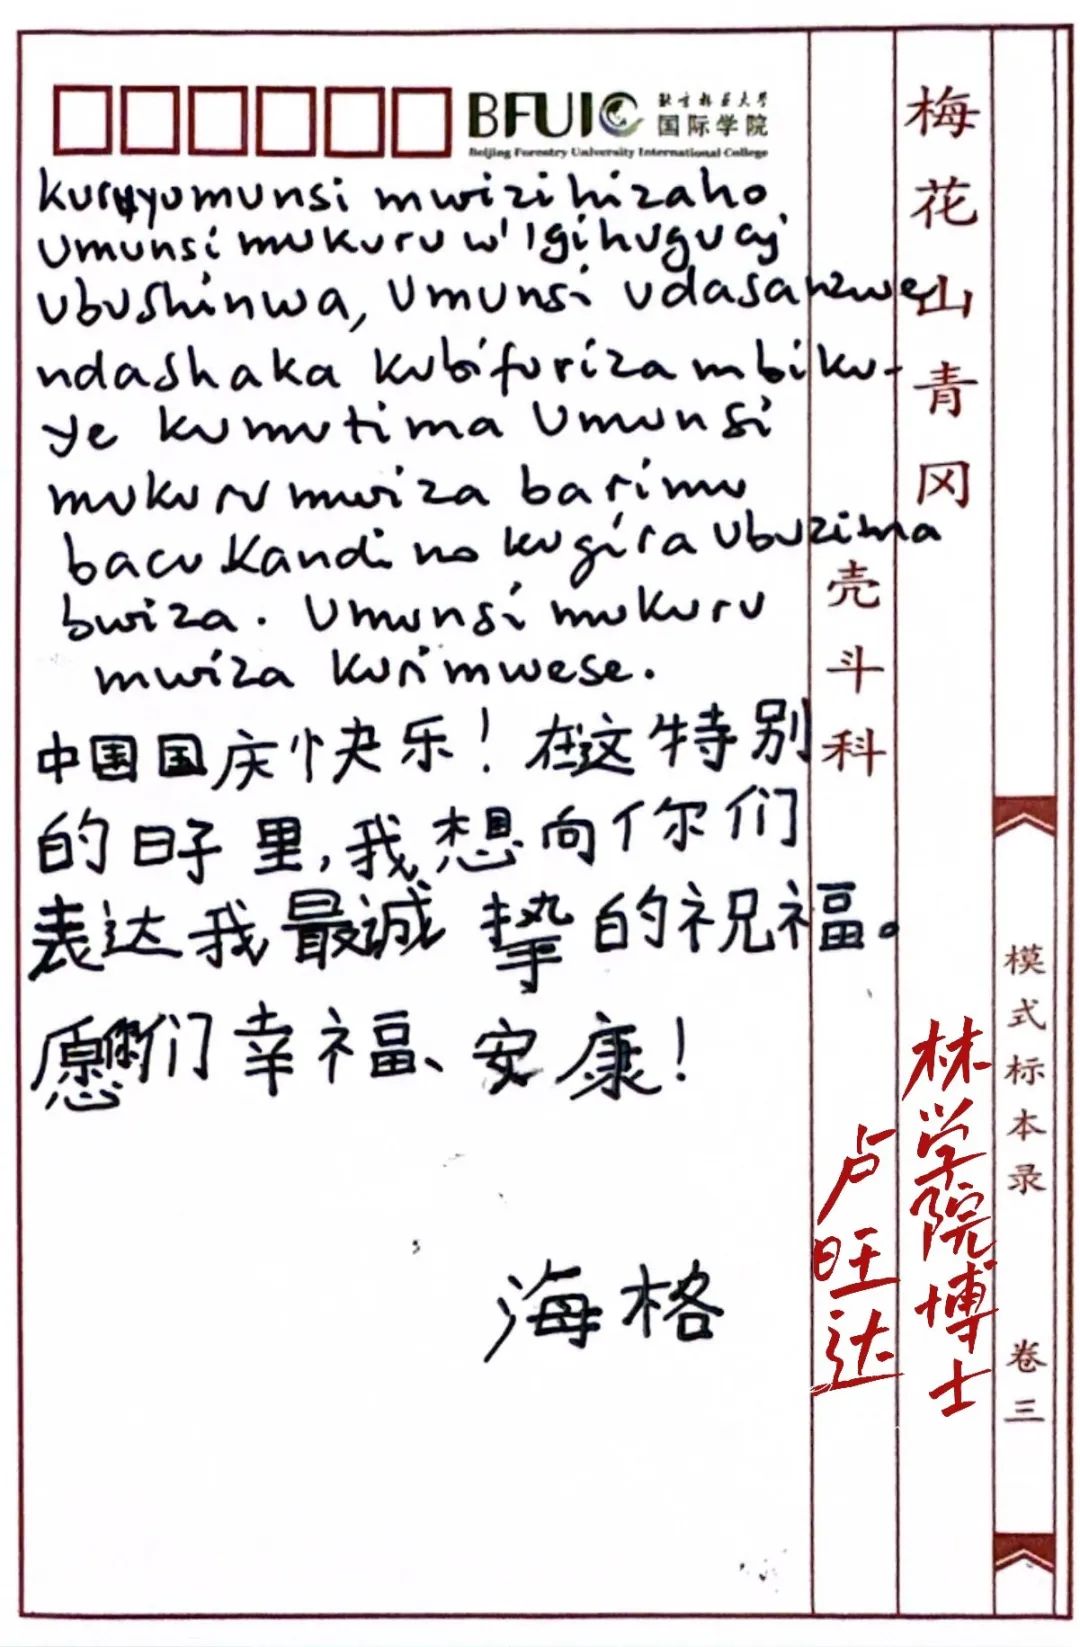 BFUIC
北京林业大学
国际学院
Beijing Forestry University International College
kuruyumunsi mwizihizaho
Umunsi mukuru w'Igihugu cy'
Ubushinwa, Umunsi udasanzwe
ndashaka kubifuriza mbiku-
ye kumutima Umunsi
mukuru mwiza barimu
bacu kandi no kugira Ubuzima
bwiza. Umunsi mukuru
mwiza kurimwese.
中国国庆快乐！在这特别
的日子里，我想向你们
表达我最诚挚的祝福。
愿你们幸福、安康！
海格
梅花山青冈
壳斗科
林学院博士
卢旺达
模式标本录
卷三